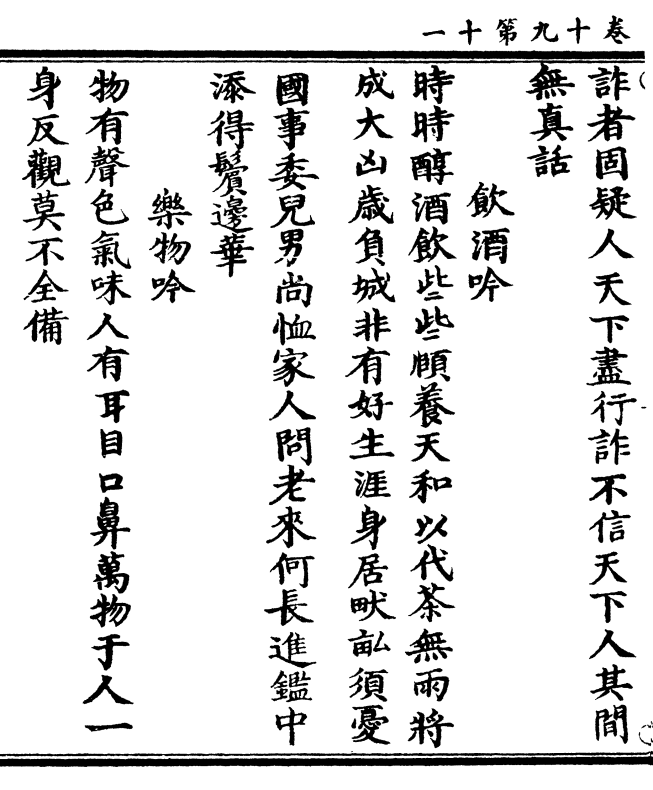 卷十九第十一
詐者固疑人天下盡行詐不信天下人其間
無真話
飲酒吟
時時醇酒飲些些頤養天和以代茶無雨將
成大凶歲負城非有好生涯身居畎畝須憂
國事委兒男尚恤家人問老來何長進鑑中
添得鬢邊華
樂物吟
物有聲色氣味人有耳目口鼻萬物于人一
身反觀莫不全備